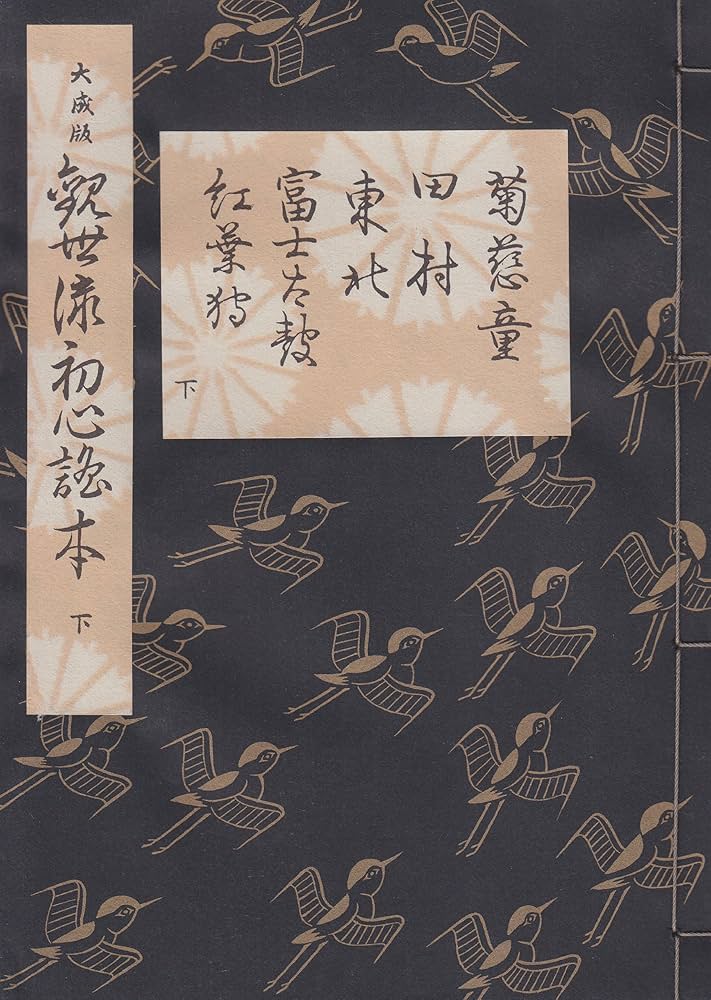 大成版 觀世流初心謠本 下
菊慈童
田村
東北
富士太鼓
紅葉狩
下